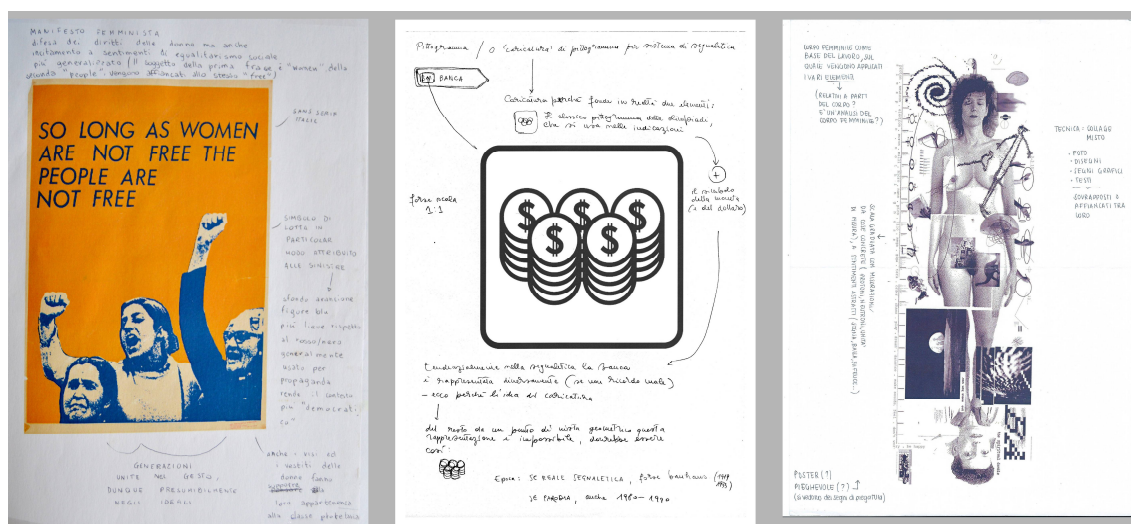 MANIFESTO FEMMINISTA
difesa dei diritti della donna ma anche
incitamento a sentimenti di egualitarismo sociale
più generalizzato (Il soggetto della prima frase è "women", della
seconda "people". Vengono affiancati allo stesso "free")
SO LONG AS WOMEN
ARE NOT FREE THE
PEOPLE ARE
NOT FREE
SANS SERIF
ITALIC
SIMBOLO DI
LOTTA IN
PARTICOLAR
MODO ATTRIBUITO
ALLE SINISTRE
sfondo arancione
figure blu
più lieve rispetto
al rosso/nero
generalmente
usato per
propaganda
rende il contesto
più "democrati
co"
GENERAZIONI
UNITE NEL GESTO,
DUNQUE PRESUMIBILMENTE
NEGLI IDEALI
anche i visi ed
i vestiti delle
donne fanno
supporre
loro appartenenza
alla classe proletaria
Pittogramma / o 'caricatura' di pittogramma per sistema di segnaletica
BANCA
Caricatura perché fonde in realtà due elementi:
Il classico pittogramma delle olimpiadi,
che si usa nelle indicazioni
+
il simbolo
della moneta
(e del dollaro)
forse scala
1:1
Tendenzialmente nella segnaletica la banca
è rappresentata diversamente (se non ricordo male)
– ecco perché l'idea di caricatura
del resto da un punto di vista geometrico questa
rappresentazione è impossibile, dovrebbe essere
così:
Epoca: SE REALE SEGNALETICA, forse bauhaus (1919
1933)
SE PARODIA, anche 1980–1990
CORPO FEMMINILE COME
BASE DEL LAVORO, SUL
QUALE VENGONO APPLICATI
I VARI ELEMENTI
(RELATIVI A PARTI
DEL CORPO?
È UN'ANALISI DEL
CORPO FEMMINILE?)
TECNICA: COLLAGE
MISTO
• FOTO
• DISEGNI
• SEGNI GRAFICI
• TESTI
SOVRAPPOSTI O
AFFIANCATI TRA
LORO
SCALA GRADUATA CON MISURAZIONI
DA COSE CONCRETE (
DI MISURA), A SENTIMENTI ASTRATTI (
POSTER (?)
PIEGHEVOLE (?)
(si vedono dei segni di piegatura)